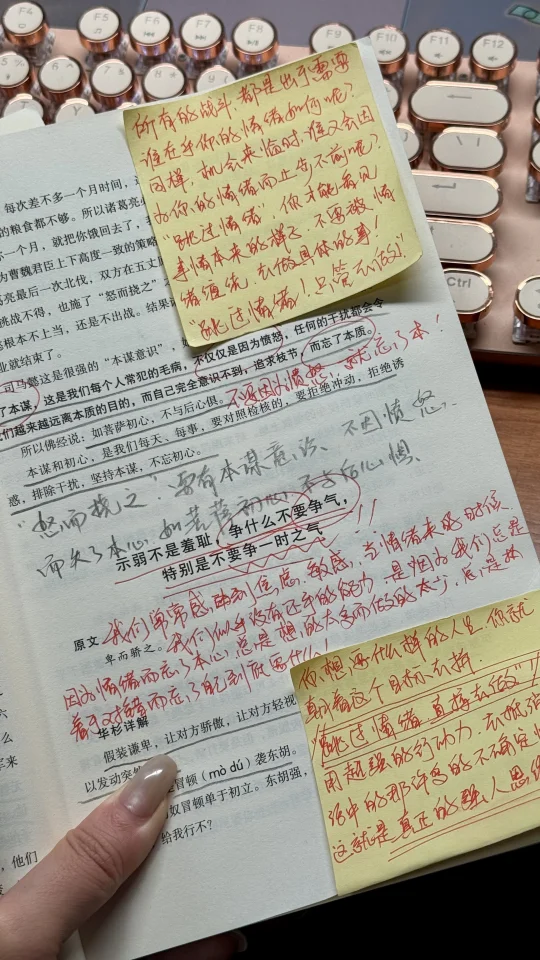 F4
F5
F6
F7
F8
F9
F10
F11
F12
Ctrl
所有的战斗,都是出于需要
谁在乎你的情绪如何呢?
同样,机会来临时,谁又会因
为你的情绪而止步不前呢?
"跳过情绪",你才能看见
事情本来的样子,不要被情
绪缠绕,去做具体的事!
"跳过情绪!只管去做!"
每次差不多一个月时间,
的粮食都不够。所以诸葛亮
一个月,就把你饿回去了,
为曹魏君臣上下高度一致的策略
亮最后一次北伐,双方在五丈
挑战不得,也施了"怒而挠之"
根本不上当,还是不出战。结果
业就结束了。
司马懿这是很强的"本谋意识",
不仅仅是因为愤怒,任何的干扰都会令
了本谋,这是我们每个人常犯的毛病,
们越来越远离本质的目的,而自己完全意识不到,追求枝节,而忘了本质。
所以佛经说:如菩萨初心,不与后心俱。
不要因为愤怒,就忘了本!
本谋和初心,是我们每天、每事,要对照检核的,要拒绝冲动,拒绝诱
惑,排除干扰,坚持本谋,不忘初心。
"怒而挠之":要有本谋意识、不因愤怒、
而失了本心,如菩萨初心,不与后心俱、
示弱不是羞耻,争什么不要争气,
特别是不要争一时之气。!!
我们常常感
焦虑、敏感,当情绪来的时候、
原文
卑而骄之。
我们似乎没有还手的能力,是因为我们总是
因为情绪而忘了本心,总是想的太多而做的太少,总是执
着于对错而忘了自己到底要什么!
华杉详解
假装谦卑,让对方骄傲,让对方轻视
以发动突然
冒顿(mò dú)袭东胡。
奴冒顿单于初立。东胡强,
给我行不?
六
么
军来
,他们
你想要什么样的人生,你就
朝着这个目标去拼
"跳过情绪,直接去做"!
用超强的行动力,去抵消
活中的那许多的不确定
这就是真正的强人思维